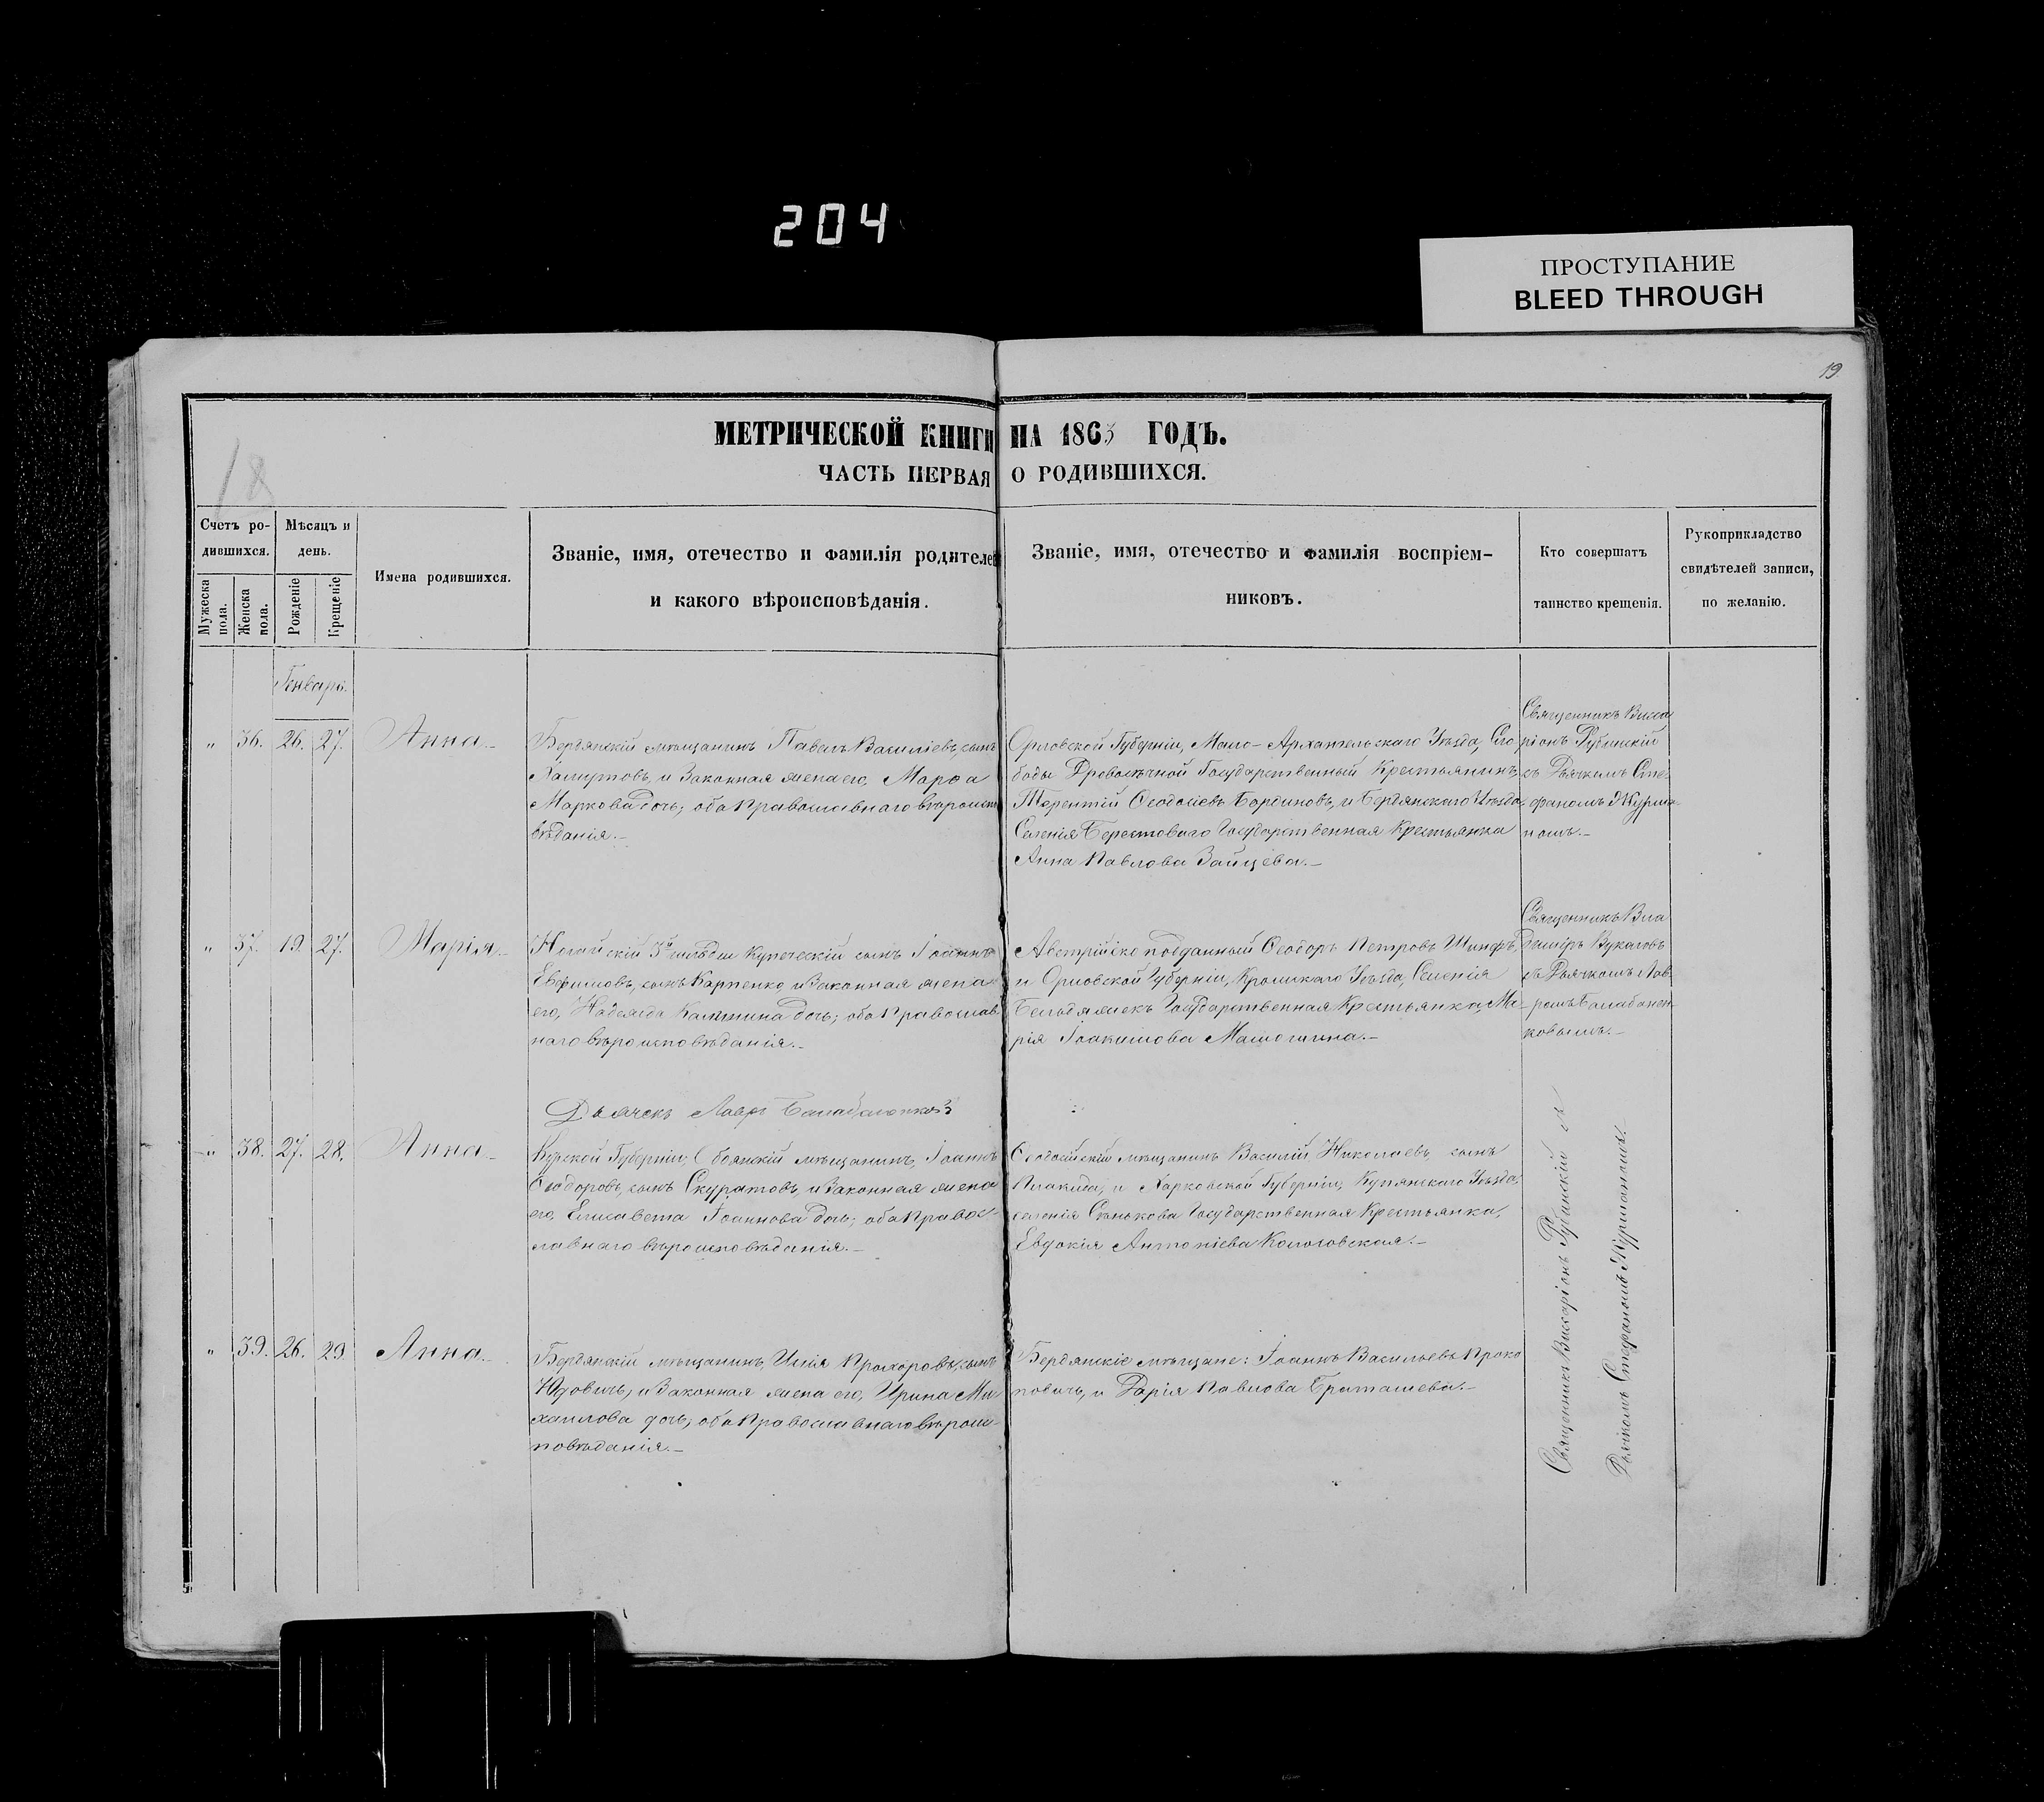 204
ПРОСТУПАНИЕ
BLEED THROUGH
19
18
МЕТРИЧЕСКОЙ КНИГИ НА 1863 ГОДЪ.
ЧАСТЬ ПЕРВАЯ О РОДИВШИХСЯ.
Счетъ ро-
дившихся.
Мужеска пола.
Женска пола.
Мѣсяцъ и
день.
Рожденіе
Крещеніе
Имена родившихся.
Званіе, имя, отечество и фамилія родителей
и какого вѣроисповѣданія.
Званіе, имя, отечество и фамилія воспріем-
никовъ.
Кто совершатъ
таинство крещенія.
Рукоприкладство
свидѣтелей записи,
по желанію.
Генварь.
" 36. 26. 27. Анна.
Бердянскій мѣщанинъ Павелъ Василіевъ, сынъ
Хамутовъ, и Законная жена его, Марѳа
Маркова дочь; оба Православнаго вѣроиспо
вѣданія.
Орловской Губерніи, Мало-Архангельскаго Уѣзда, Сло
боды Государственный Крестьянинъ
Терентій Ѳеодосіевъ Бординовъ, и Бердянскаго Уѣзда,
Селенія Берестоваго Государственная Крестьянка
Анна Павлова Зайцева.
Священникъ Висса
ріонъ Рубинскій
съ Дьячкомъ Сте-
фаномъ
" 37. 19. 27. Марія.
Ногайскій 3й гильдіи Купеческій сынъ Іоаннъ
Евфимовъ, сынъ Карпенко, и Законная жена
его, Надежда дочь; оба Православ-
наго вѣроисповѣданія.
подданный Ѳеодоръ Петровъ
и Орловской Губерніи, Кромскаго Уѣзда, Селенія
Государственная Крестьянка, Ма-
рія Іоакимова
Священникъ Вла
диміръ
съ Дьячкомъ Лав-
ромъ Балабанен-
ковымъ.
Дьячекъ Лавръ
" 38. 27. 28. Анна.
Курской Губерніи, Обоянскій мѣщанинъ, Іоаннъ
Ѳеодоровъ, сынъ Скуратовъ, и Законная жена
его, Елисавета Іоаннова дочь; оба Правос-
лавнаго вѣроисповѣданія.
Ѳеодосійскій мѣщанинъ Василій Николаевъ, сынъ
Плакида, и Харковской Губерніи, Купянскаго Уѣзда,
селенія Сѣнькова Государственная Крестьянка,
Евдокія Антоніева
" 39. 26. 29. Анна.
Бердянскій мѣщанинъ, Илія Прохоровъ, сынъ
Юдовичъ, и Законная жена его, Ирина Ми
хаилова дочь; оба Православнаго вѣроис-
повѣданія.
Бердянскіе мѣщане: Іоаннъ Васильевъ Проко
повичъ, и Дарія Павлова Браташева.
Священникъ Виссаріонъ Рубинскій съ
Дьячкомъ Стефаномъ